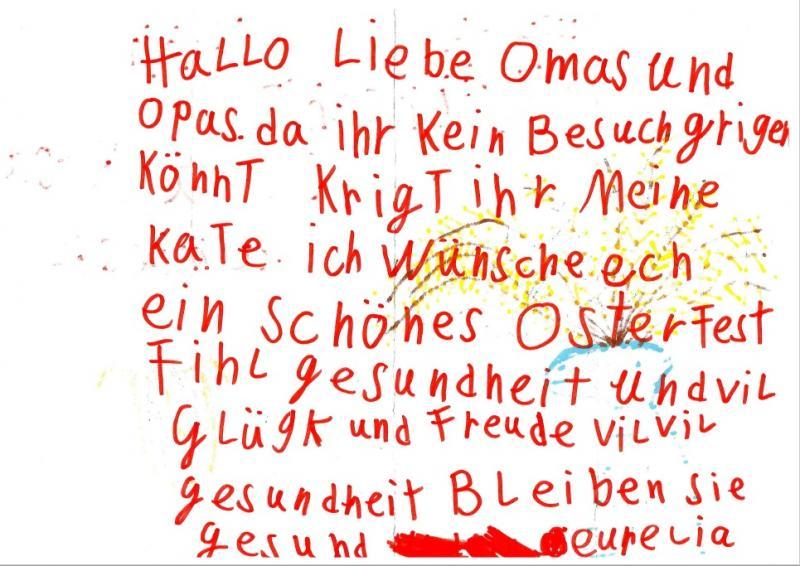 Hallo Liebe Omas und
Opas. da ihr Kein Besuch grigen
KönnT KrigT ihr Meine
KaTe ich Wünsche ech
ein Schönes Osterfest
Fihl gesundheit und viL
GLügk und Freude viL viL
gesundheit BLeiben sie
gesund eureLia